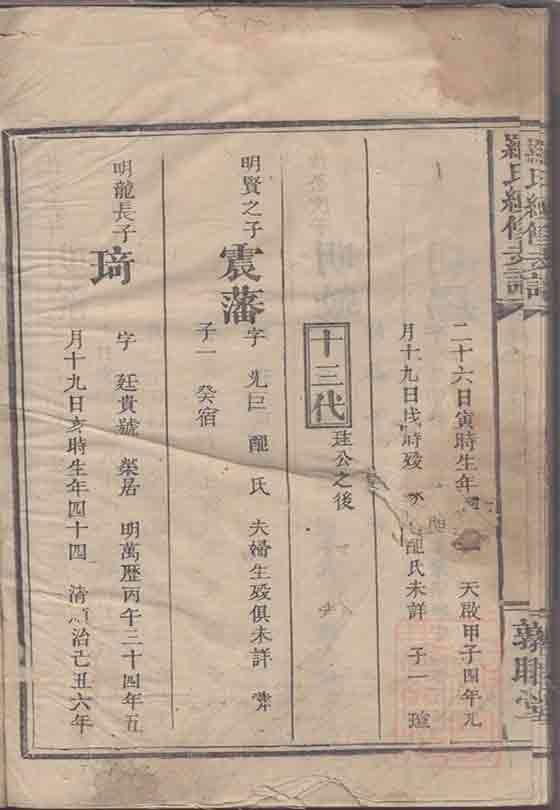 羅氏續修支譜
二十六日寅時生年 天啟甲子四年九
月十九日戌時歿 配氏未詳 子一 瑄
十三代 珪公之後
明賢之子 震藩 字 光巨 配 氏 夫婦生歿俱未詳 葬
子一 癸宿
明龍長子 琦 字 廷貴號 榮居 明萬歷丙午三十四年五
月十九日亥時生年四十四 清順治己丑六年